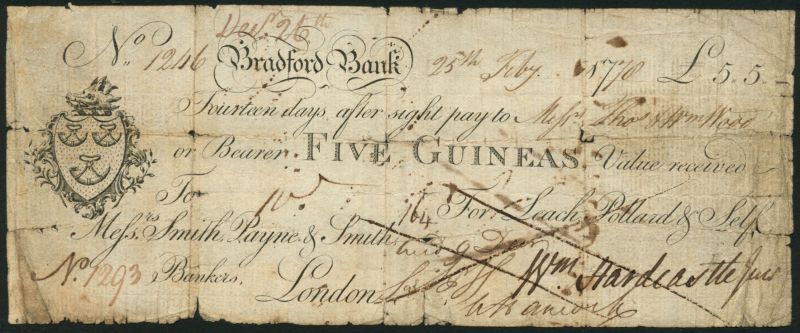 No. 1246 Bradford Bank 25th Feby. 1778 £5.5.—
Fourteen days after sight pay to Messrs. Thos & Wm Wood
or Bearer FIVE GUINEAS Value received
To
For Leach, Pollard & Self
Messrs. Smith, Payne & Smith,
Bankers,
Wm. Hardcastle Junr
No. 1293
London